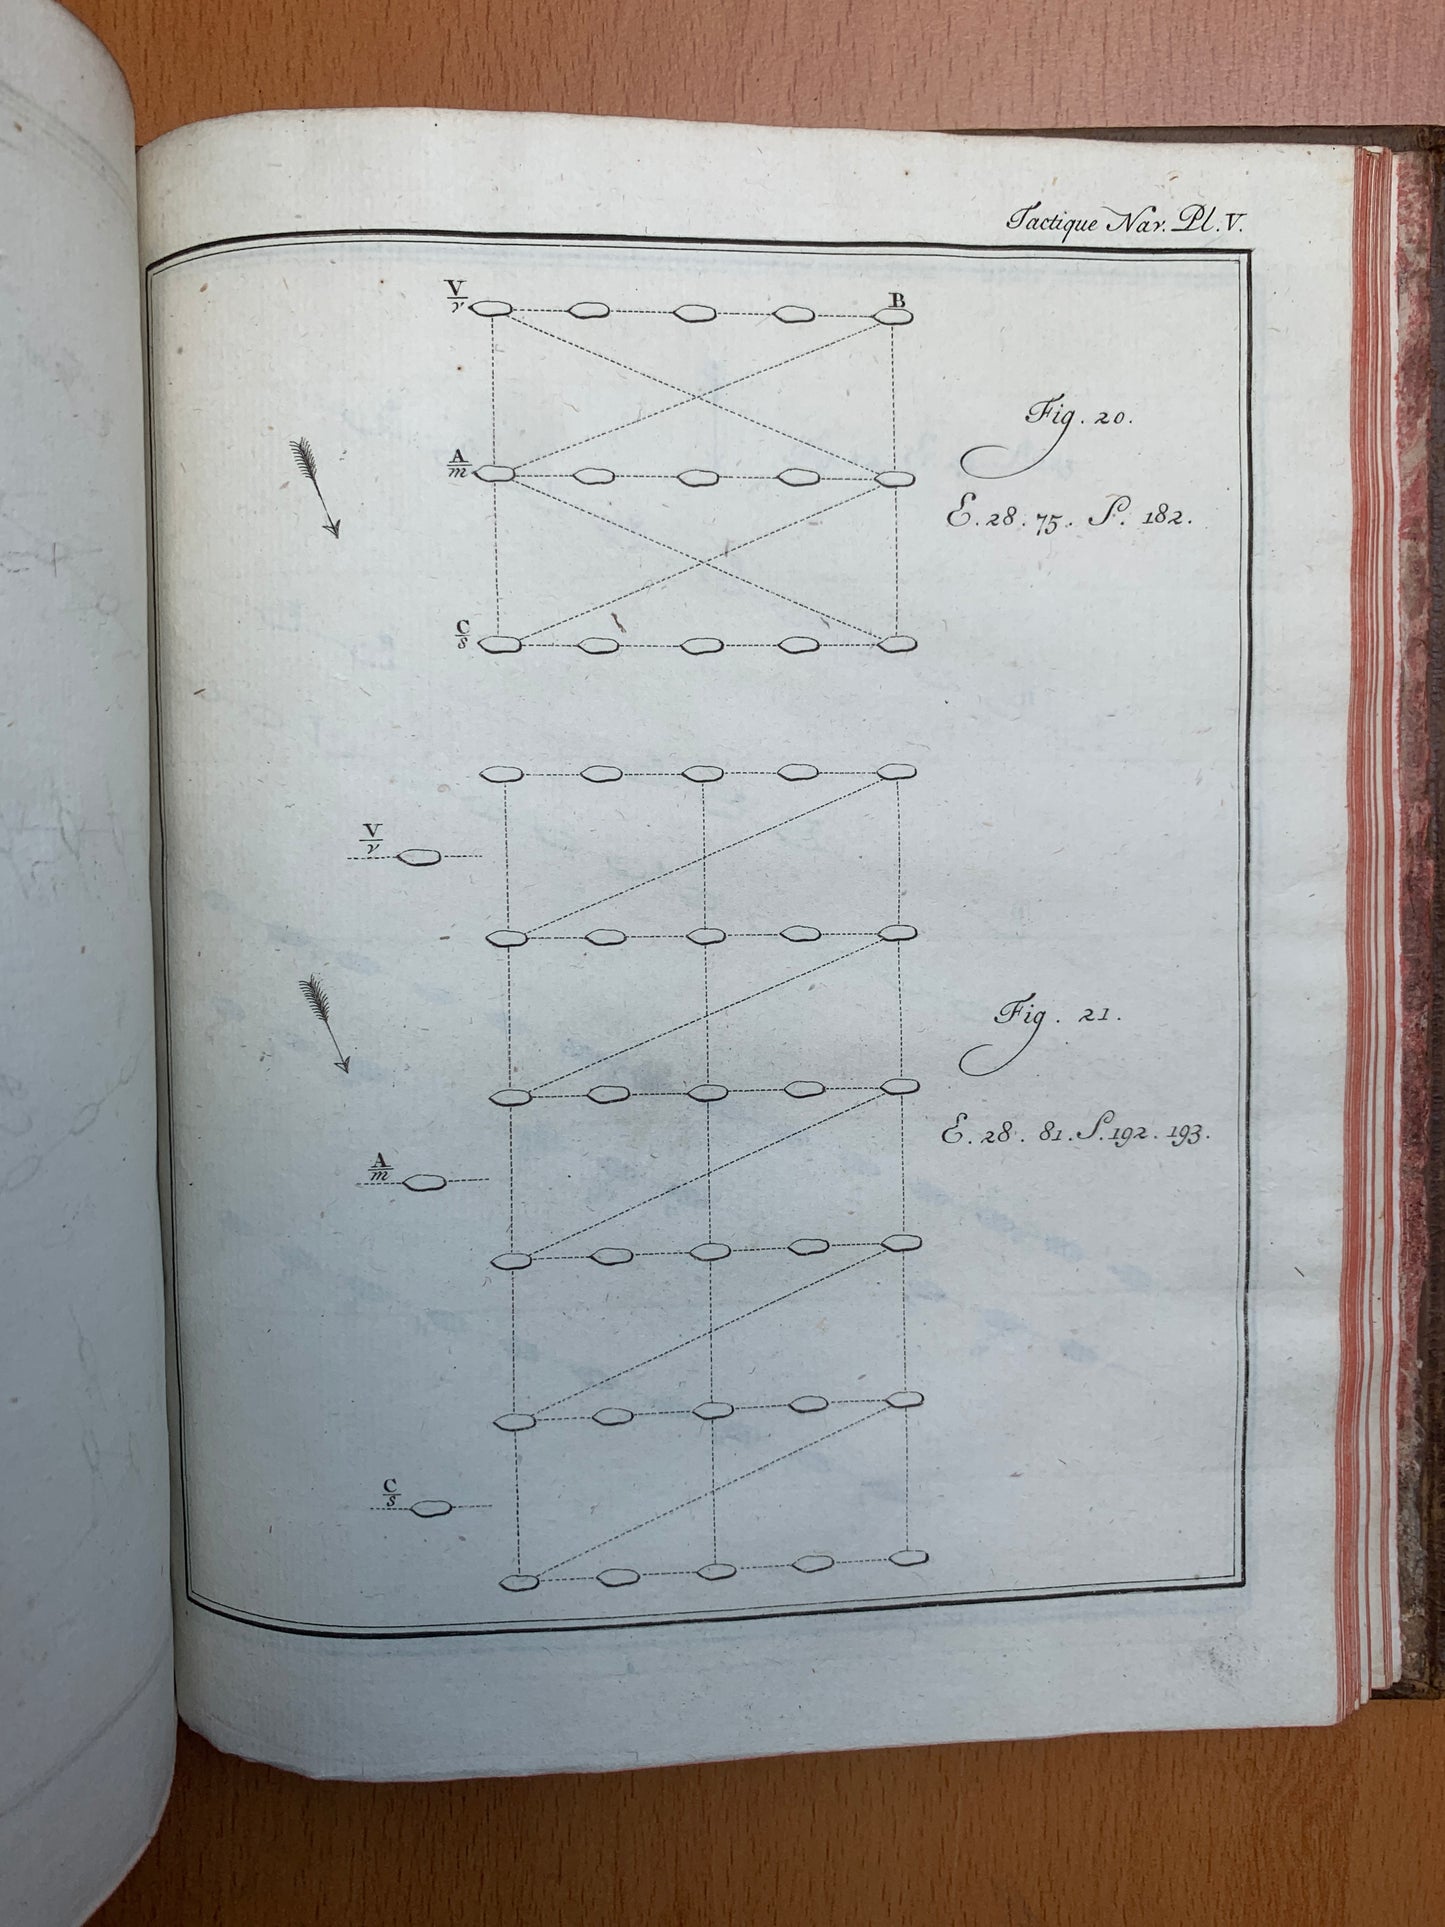 Tactique Nav. Pl. V.
V
v
B
Fig. 20.
A
m
E. 28. 75. S. 182.
C
s
V
v
Fig. 21.
E. 28. 81. S. 192. 193.
A
m
C
s